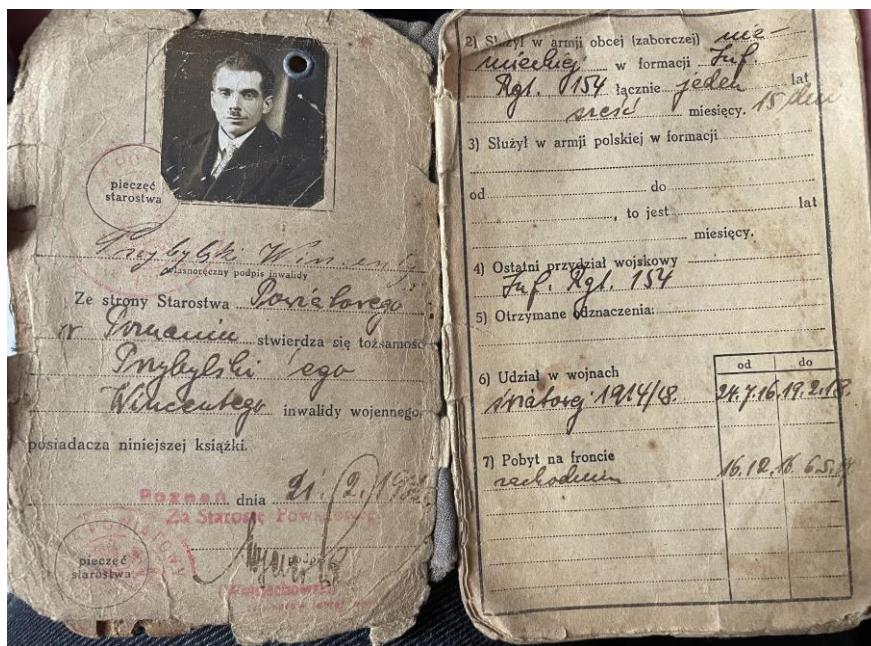 pieczęć
starostwa
Przybylski Wincenty
własnoręczny podpis inwalidy
Ze strony Starostwa Powiatowego
w Poznaniu stwierdza się tożsamość
Przybylski'ego
Wincentego inwalidy wojennego,
posiadacza niniejszej książki.
Poznań dnia 21./2./
Za Starostę Powiatowego
pieczęć
starostwa
2) Służył w armji obcej (zaborczej) nie-
mieckiej w formacji Inf.
Rgt. 154 łącznie jeden lat
sześć miesięcy. 15 dni
3) Służył w armji polskiej w formacji
od do
, to jest lat
miesięcy.
4) Ostatni przydział wojskowy
Inf. Rgt. 154
5) Otrzymane odznaczenia:
od do
6) Udział w wojnach
światowej 1914/18. 24.7.16. 19.2.18.
7) Pobyt na froncie
zachodnim 16.12.16 6.5.17